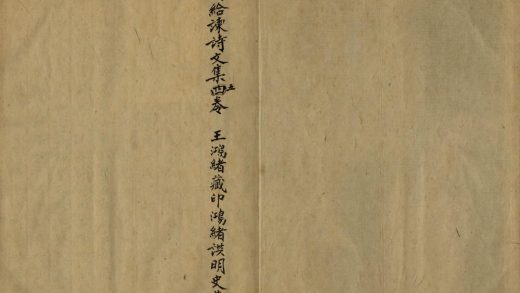 給諫詩文集四五卷 王鴻緒藏印鴻緒撰明史